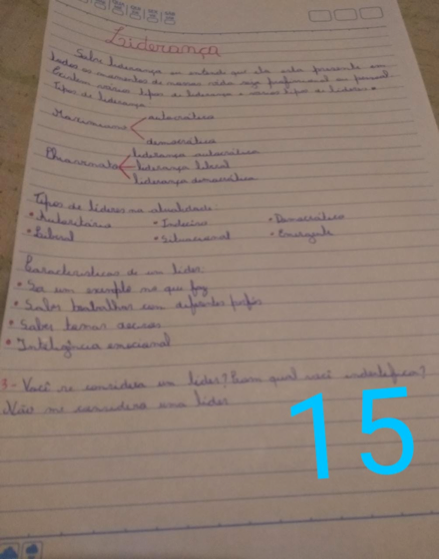 Liderança
Sobre liderança eu entendo que ela está presente em
todos os momentos de nossas vidas seja profissional ou pessoal.
Existem vários tipos de liderança e vários tipos de líderes.
Tipos de liderança
autocrática
democrática
Chiavenato
liderança autocrática
liderança liberal
liderança democrática
Tipos de líderes na atualidade:
• Autoritário • Indeciso • Democrático
• Liberal • Situacional • Emergente
Características de um líder:
• Ser um exemplo no que faz
• Saber trabalhar com diferentes perfis
• Saber tomar decisões
• Inteligência emocional
3- Você se considera um líder? Com qual você
Não me considero uma líder
15